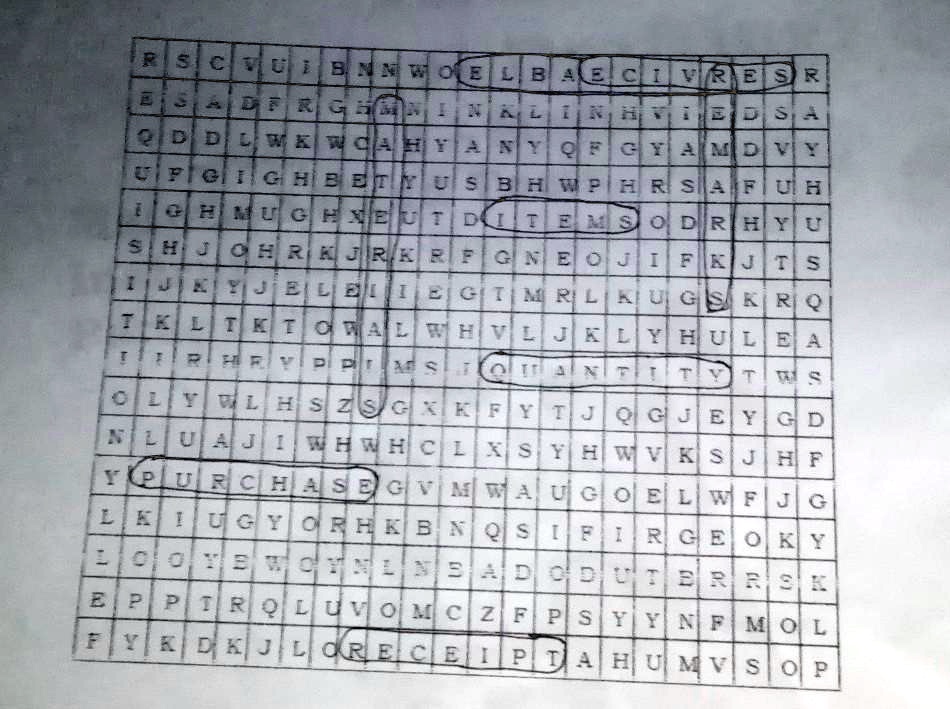 R S C V U I B N N W O E L B A E C I V R E S R
E S A D F R G H M N I N K L I N H V I E D S A
Q D D L W K W C A H Y A N Y Q F G Y A M D V Y
U F G I G H B E T Y U S B H W P H R S A F U H
I G H M U G H X E U T D I T E M S O D R H Y U
S H J O H R K J R K R F G N E O J I F K J T S
I J K Y J E L E I I E G T M R L K U G S K R Q
T K L T K T O W A L W H V L J K L Y H U L E A
I I R H R Y P P L M S J Q U A N T I T Y T W S
O L Y W L H S Z S G X K F Y T J Q G J E Y G D
N L U A J I W H W H C L X S Y H W V K S J H F
Y P U R C H A S E G V M W A U G O E L W F J G
L K I U G Y O R H K B N Q S I F I R G E O K Y
L O O Y E W O Y N L N E A D O D U T E R R S K
E P P T R Q L U V O M C Z F P S Y Y N F M O L
F Y K D K J L O R E C E I P T A H U M V S O P